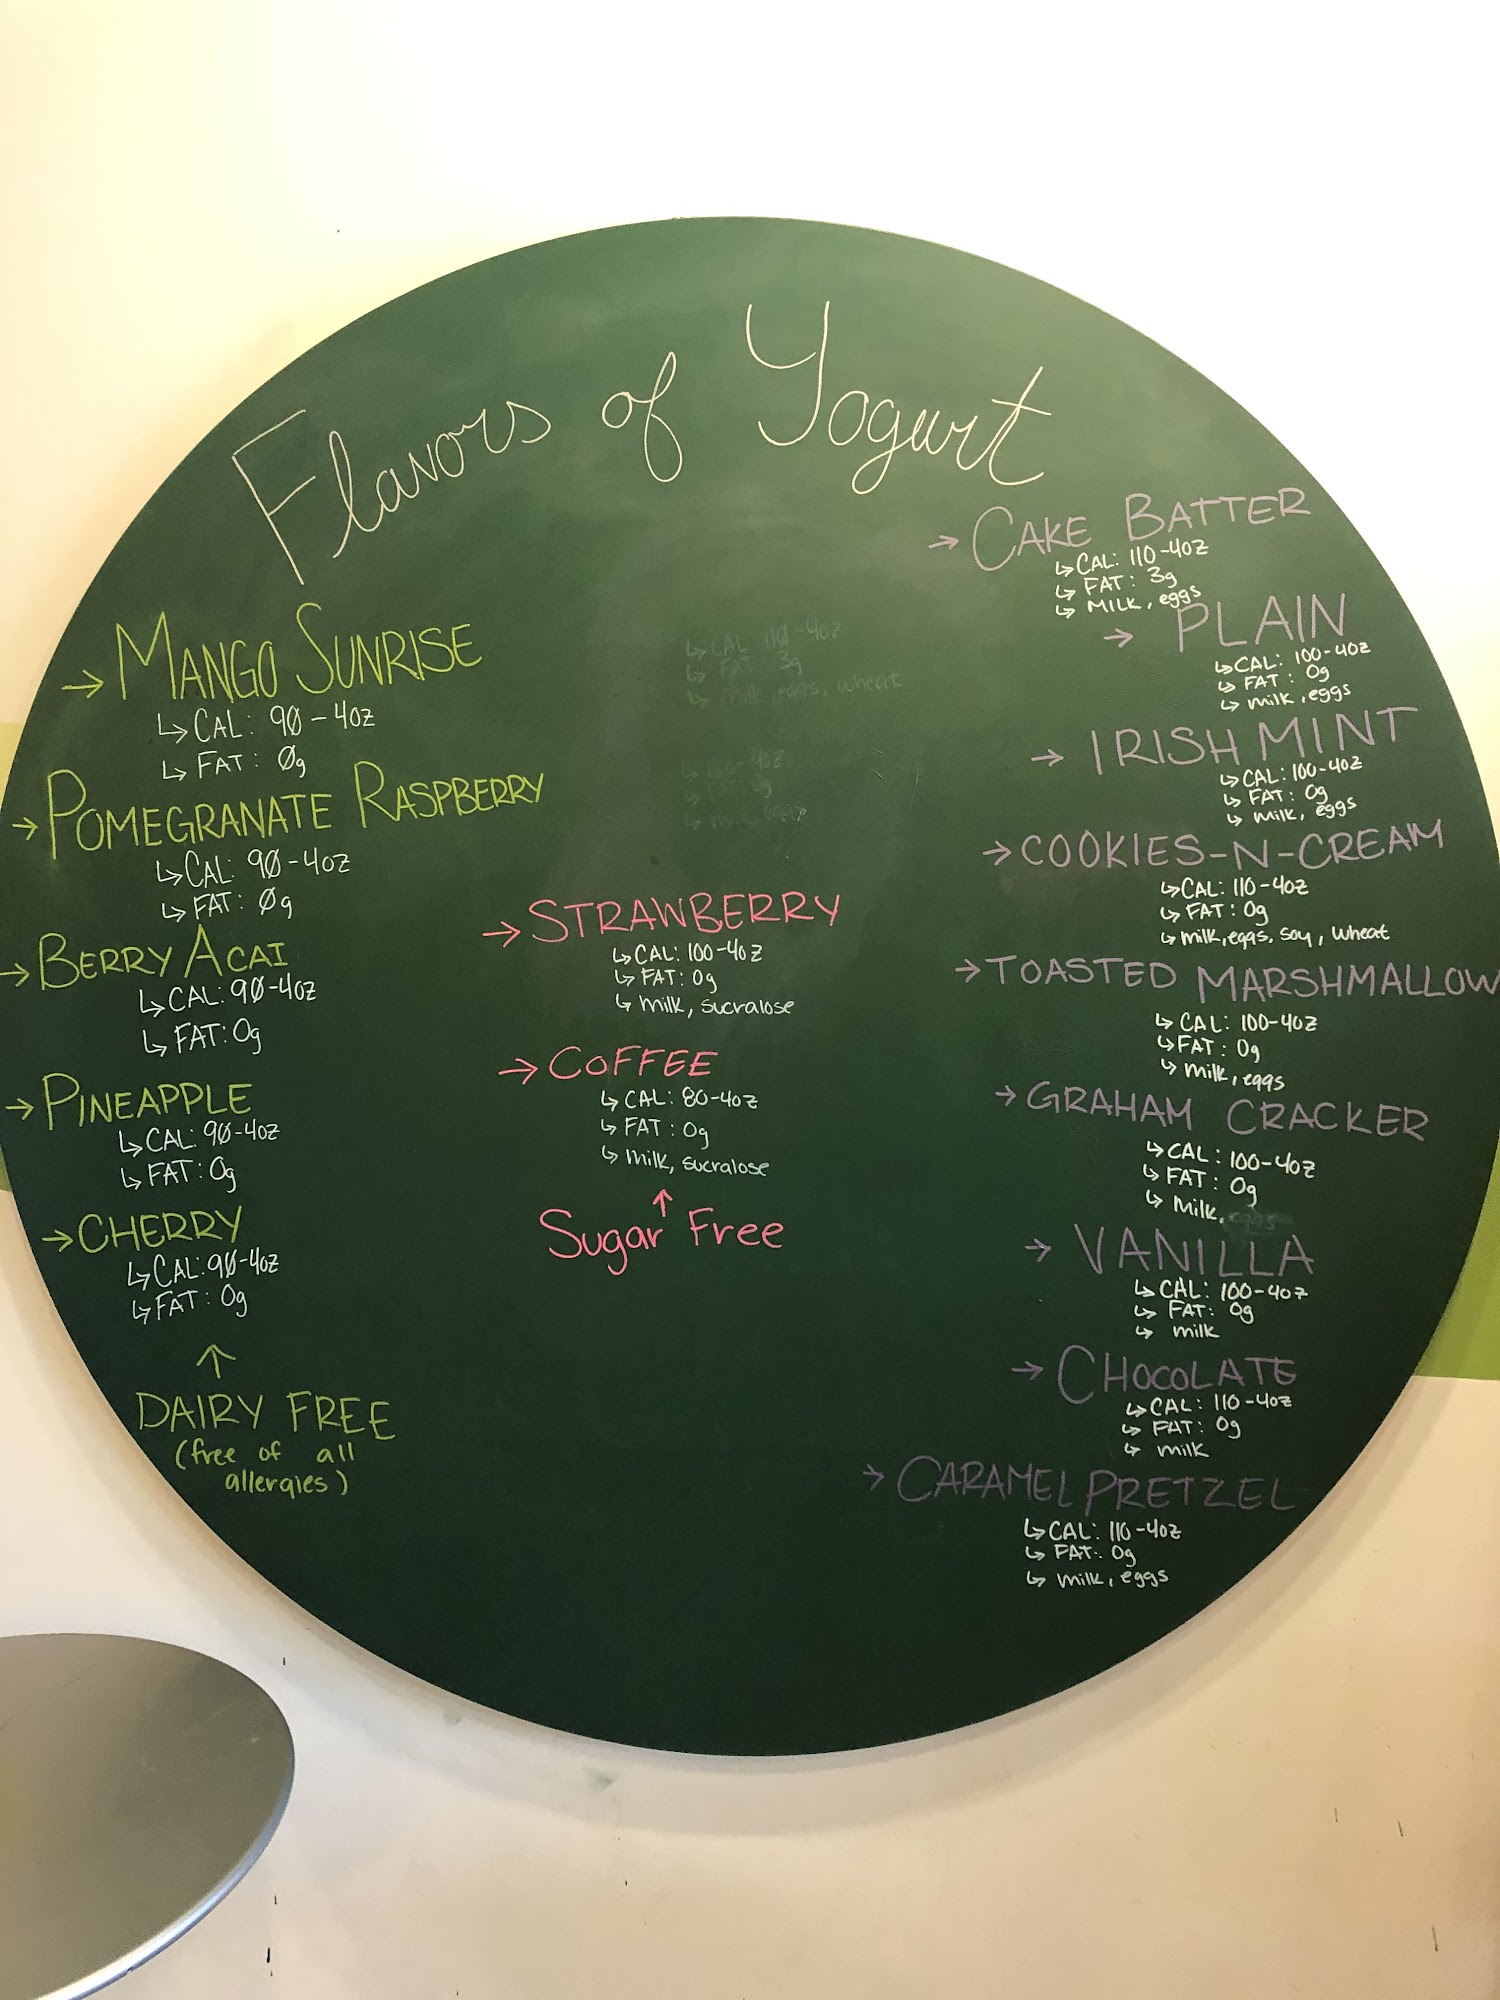 Flavors of Yogurt
→ MANGO SUNRISE
↳ CAL: 90 - 4oz
↳ FAT: 0g
→ POMEGRANATE RASPBERRY
↳ CAL: 90-4oz
↳ FAT: 0g
→ BERRY ACAI
↳ CAL: 90-4oz
↳ FAT: 0g
→ PINEAPPLE
↳ CAL: 90-4oz
↳ FAT: 0g
→ CHERRY
↳ CAL: 90-4oz
↳ FAT: 0g
↑
DAIRY FREE
(free of all
allergies)
↳ CAL 110-4oz
↳ FAT 3g
↳ milk, eggs, wheat
→ STRAWBERRY
↳ CAL: 100-4oz
↳ FAT: 0g
↳ milk, sucralose
→ COFFEE
↳ CAL: 80-4oz
↳ FAT: 0g
↳ milk, sucralose
↑
Sugar Free
→ CAKE BATTER
↳ CAL: 110-4oz
↳ FAT: 3g
↳ MILK, eggs
→ PLAIN
↳ CAL: 100-4oz
↳ FAT: 0g
↳ milk, eggs
→ IRISH MINT
↳ CAL: 100-4oz
↳ FAT: 0g
↳ milk, eggs
→ COOKIES-N-CREAM
↳ CAL: 110-4oz
↳ FAT: 0g
↳ milk, eggs, soy, wheat
→ TOASTED MARSHMALLOW
↳ CAL: 100-4oz
↳ FAT: 0g
↳ milk, eggs
→ GRAHAM CRACKER
↳ CAL: 100-4oz
↳ FAT: 0g
↳ milk, eggs
→ VANILLA
↳ CAL: 100-4oz
↳ FAT: 0g
↳ milk
→ CHOCOLATE
↳ CAL: 110-4oz
↳ FAT: 0g
↳ milk
→ CARAMEL PRETZEL
↳ CAL: 110-4oz
↳ FAT: 0g
↳ milk, eggs